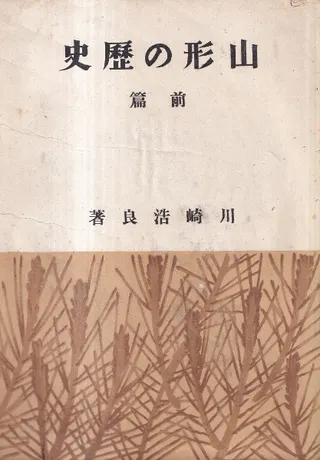 山形の歷史
前篇
川崎浩良著